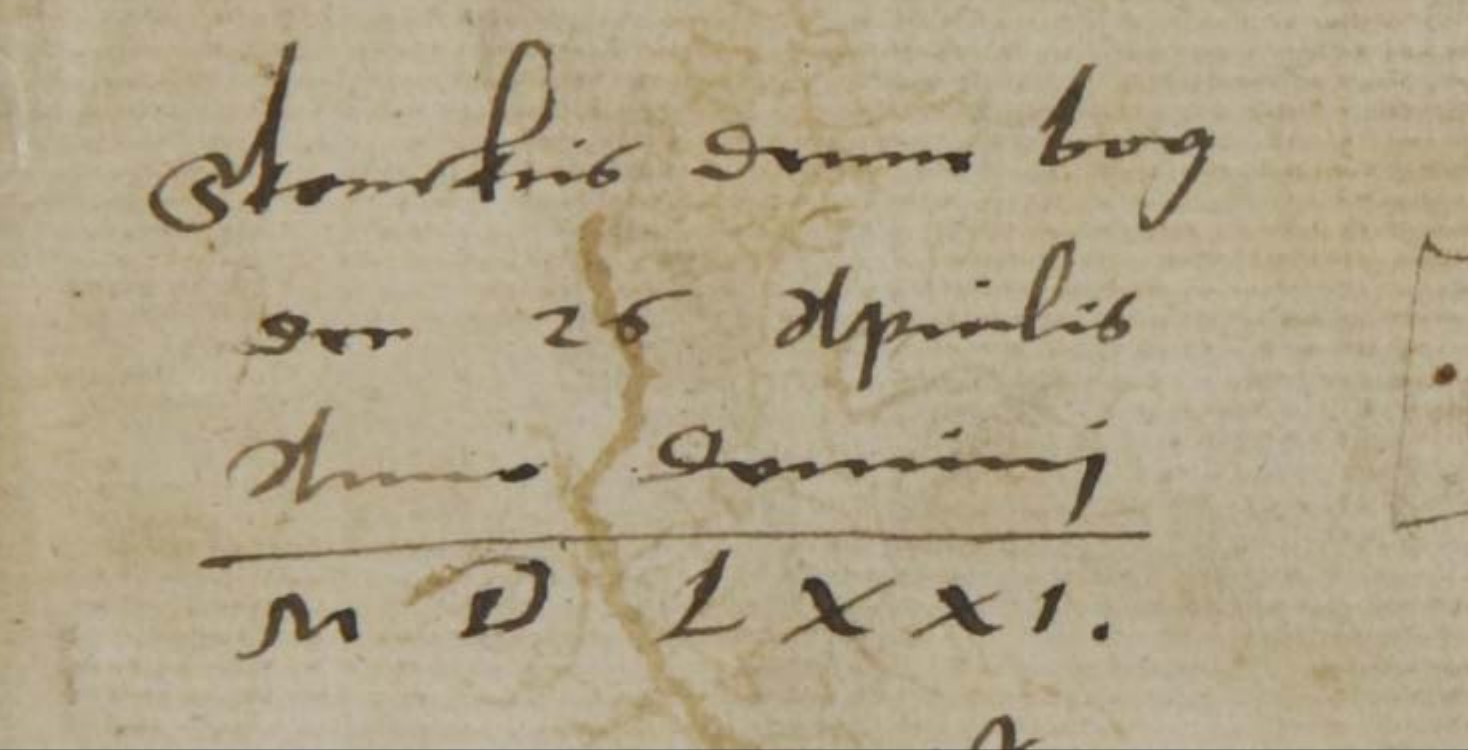 Skenckis denne bog
den 26 Aprilis
Anno Dominj
M D L X X I.